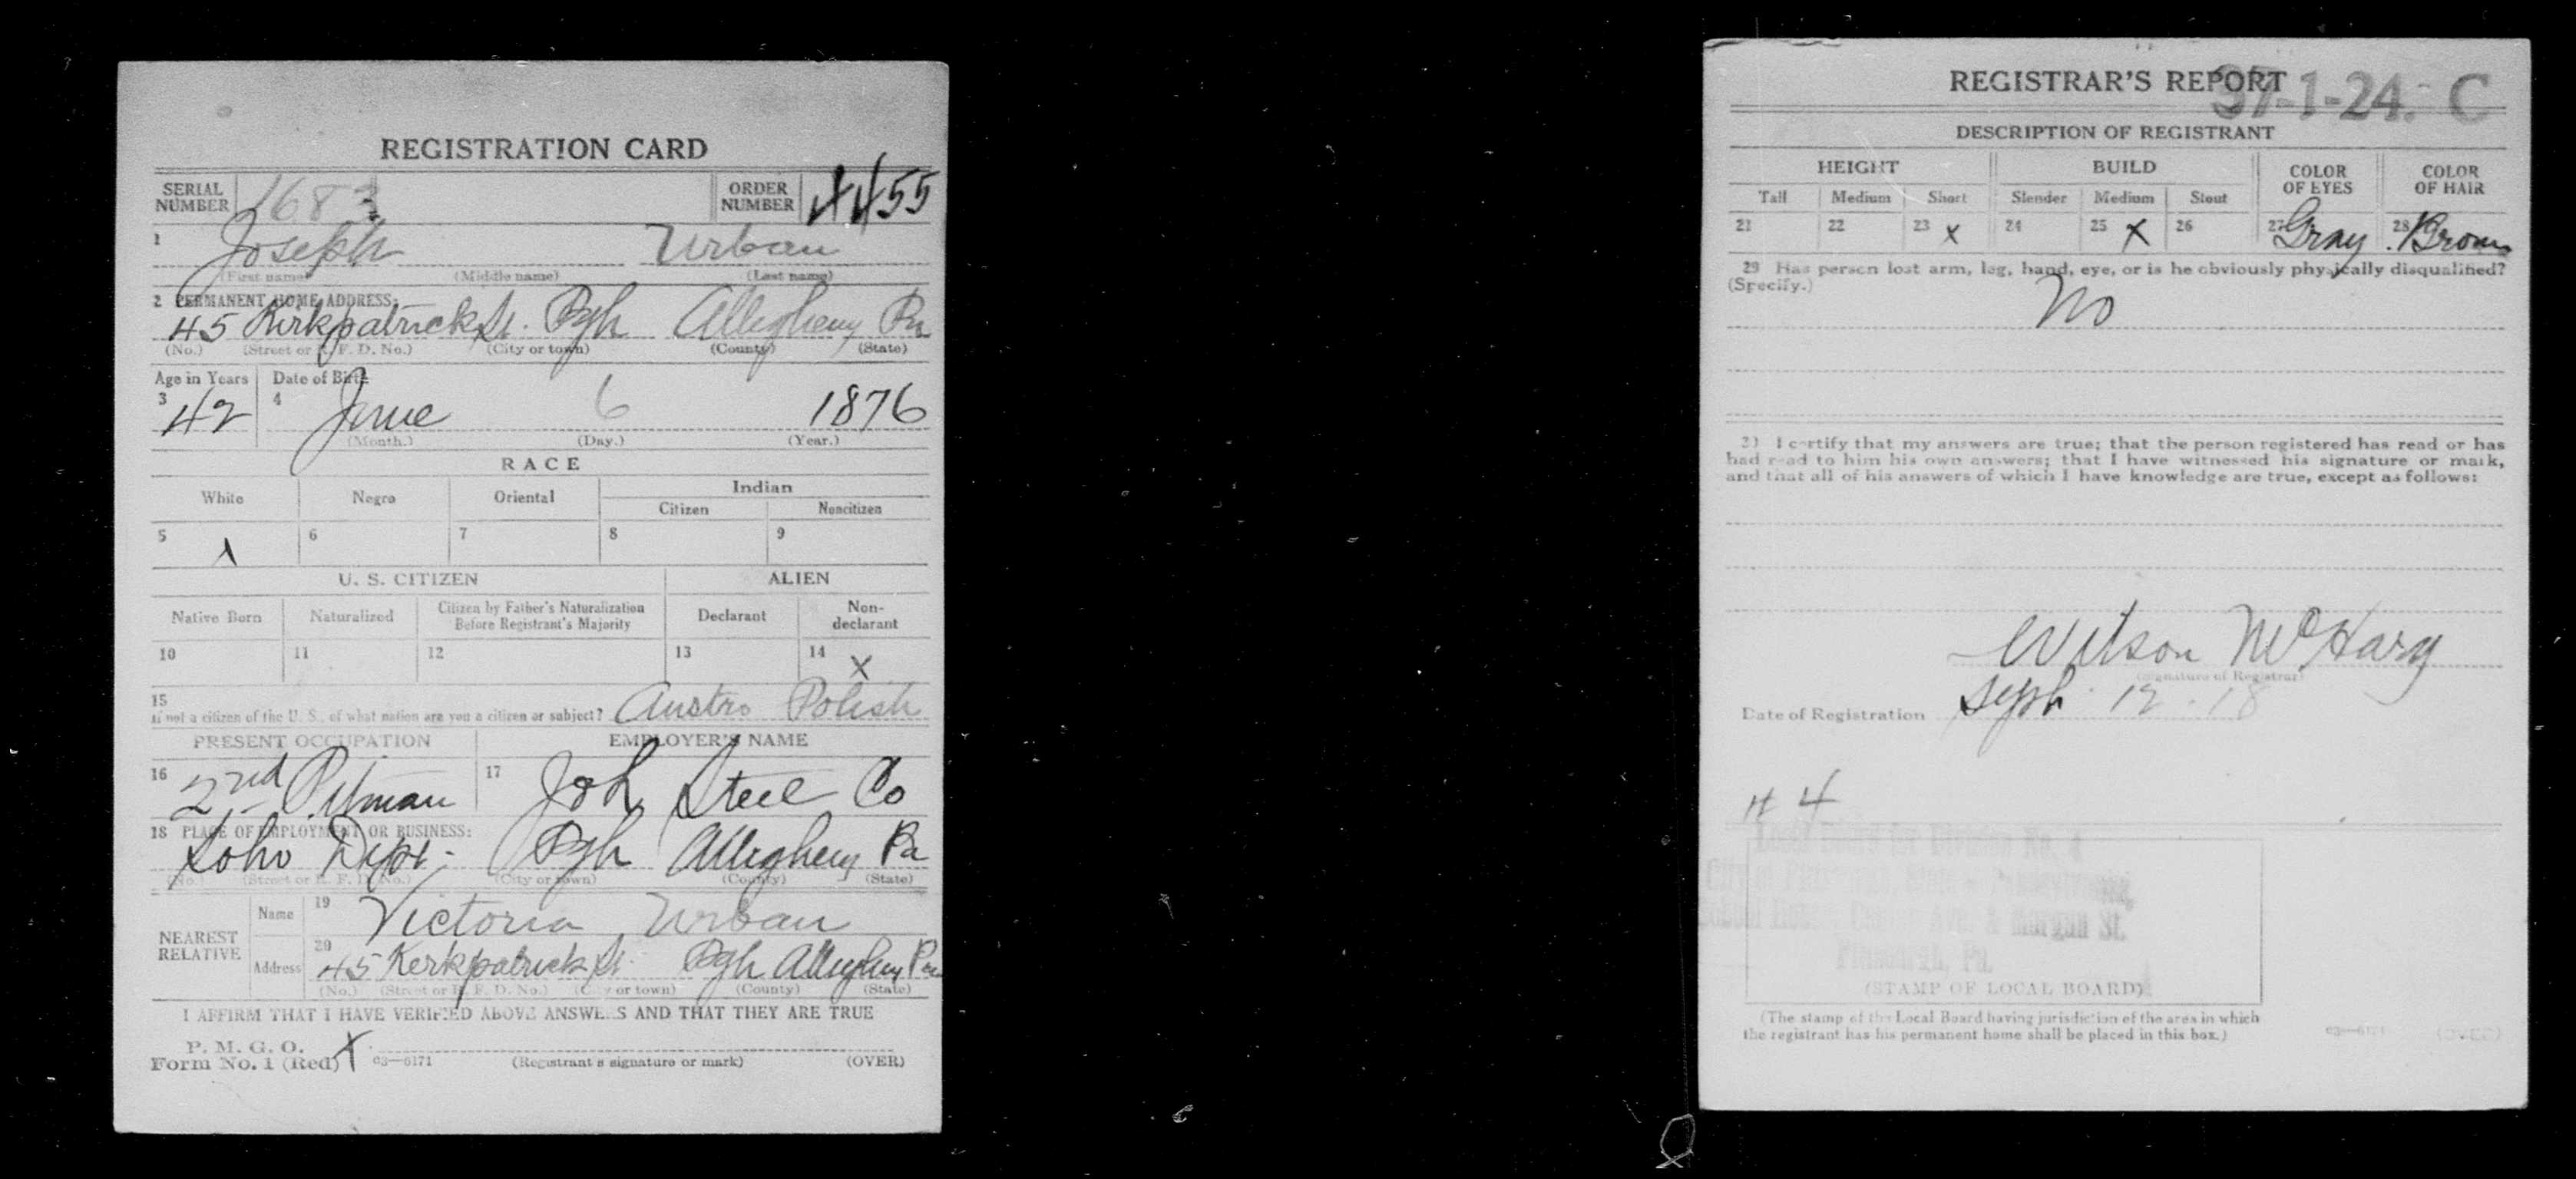 REGISTRATION CARD
SERIAL NUMBER 1683 ORDER NUMBER 4455
1 Joseph Urban
(First name) (Middle name) (Last name)
2 PERMANENT HOME ADDRESS:
45 Kirkpatrick St. Pgh Allegheny Pa
(No.) (Street or R. F. D. No.) (City or town) (County) (State)
Age in Years Date of Birth
3 42 4 June 6 1876
(Month.) (Day.) (Year.)
RACE
White Negro Oriental Indian
Citizen Noncitizen
5 X 6 7 8 9
U. S. CITIZEN ALIEN
Native Born Naturalized Citizen by Father's Naturalization Before Registrant's Majority Declarant Non-declarant
10 11 12 13 14 X
15
If not a citizen of the U. S., of what nation are you a citizen or subject? Austro Polish
PRESENT OCCUPATION EMPLOYER'S NAME
16 2nd Pitman 17 Steel Co
18 PLACE OF EMPLOYMENT OR BUSINESS:
Soho Dept. Pgh Allegheny Pa
(No.) (Street or R. F. D. No.) (City or town) (County) (State)
NEAREST RELATIVE Name 19 Victoria Urban
Address 20 45 Kerkpatrick St. Pgh Allegheny Pa
(No.) (Street or R. F. D. No.) (City or town) (County) (State)
I AFFIRM THAT I HAVE VERIFIED ABOVE ANSWERS AND THAT THEY ARE TRUE
P. M. G. O.
Form No. 1 (Red) X 03—6171 (Registrant's signature or mark) (OVER)
REGISTRAR'S REPORT
37-1-24. C
DESCRIPTION OF REGISTRANT
HEIGHT BUILD COLOR OF EYES COLOR OF HAIR
Tall Medium Short Slender Medium Stout
21 22 23 X 24 25 X 26 27 Gray 28 Brown
29 Has person lost arm, leg, hand, eye, or is he obviously physically disqualified?
(Specify.) No
30 I certify that my answers are true; that the person registered has read or has
had read to him his own answers; that I have witnessed his signature or mark,
and that all of his answers of which I have knowledge are true, except as follows:
Wilson McHarg
(Signature of Registrar)
Date of Registration Sept. 12. 18
# 4
Local Board for Division No. 4
City of Pittsburgh, State of Pennsylvania,
Center Ave. & Morgan St.
Pittsburgh, Pa.
(STAMP OF LOCAL BOARD)
(The stamp of the Local Board having jurisdiction of the area in which
the registrant has his permanent home shall be placed in this box.)
03—6171 (OVER)